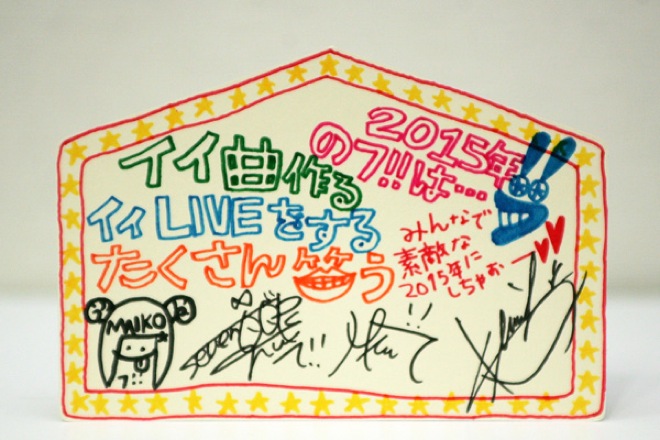 2015年
の7!!は…
イイ曲作る
イイLIVEをする
たくさん笑う
みんなで
素敵な
2015年に
しちゃお
MAIKO
7!!